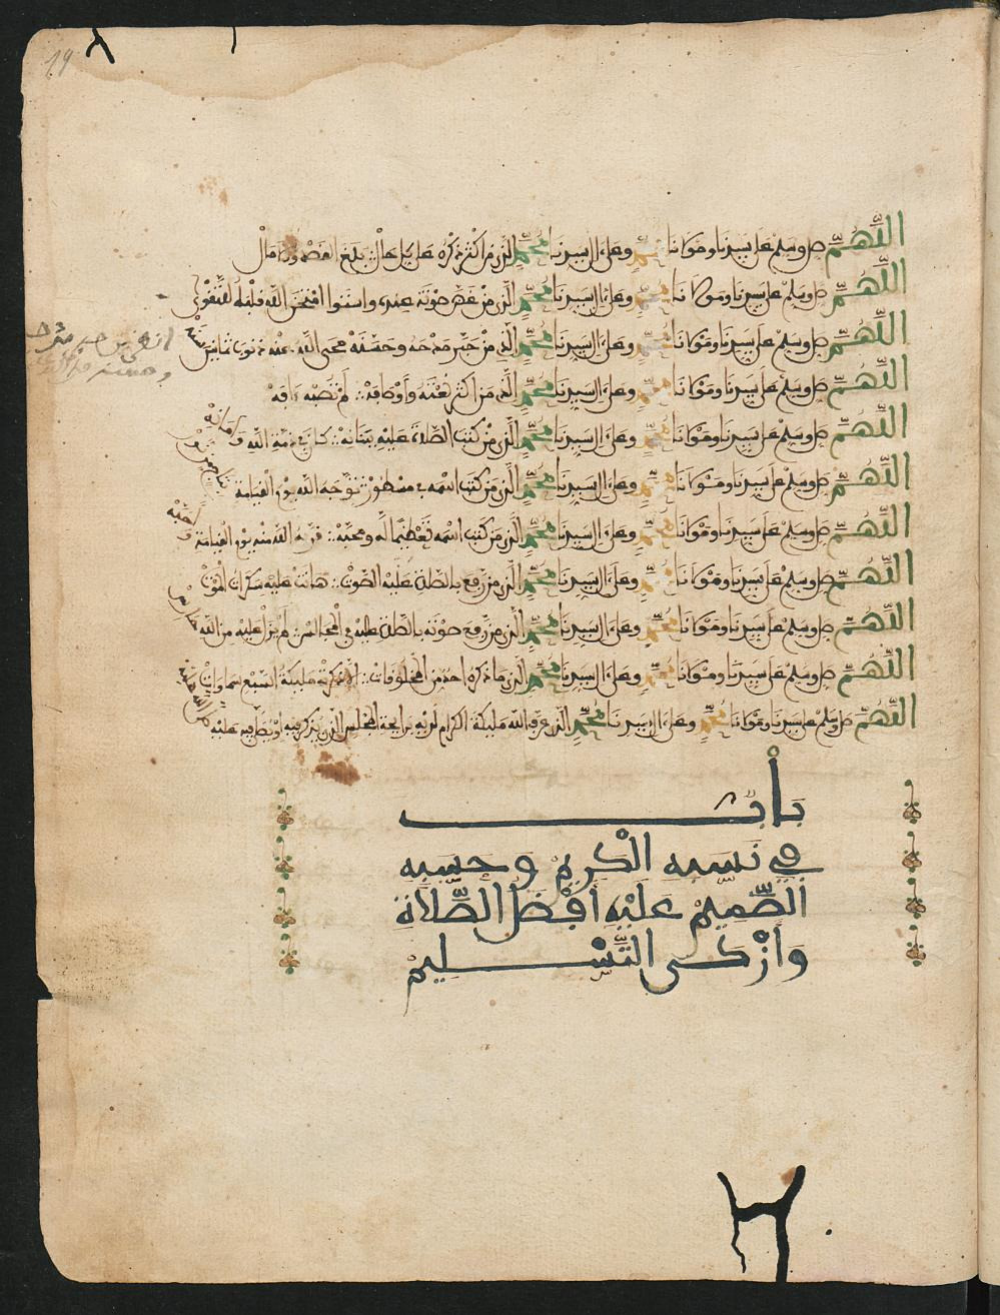 19
اللَّهُمَّ صل وسلم على سيدنا ومولانا محمد وعلى ال سيدنا محمد الذي من اكثر ذكره على كل حال بلغ القصد والامال
اللَّهُمَّ صل وسلم على سيدنا ومولانا محمد وعلى ال سيدنا محمد الذي من غض صوته عنده امتحن الله قلبه للتقوى
اللَّهُمَّ صل وسلم على سيدنا ومولانا محمد وعلى ال سيدنا محمد الذي من مدحه وحسنه محى الله عنه ذنوب ثمانين سنة
اللَّهُمَّ صل وسلم على سيدنا ومولانا محمد وعلى ال سيدنا محمد الذي من اكثر نعته وأوصافه لم تصبه
اللَّهُمَّ صل وسلم على سيدنا ومولانا محمد وعلى ال سيدنا محمد الذي من كتب الصلاة عليه كان في ذمة الله وأمانه
اللَّهُمَّ صل وسلم على سيدنا ومولانا محمد وعلى ال سيدنا محمد الذي من كتب اسمه في مسطور توجه الله يوم القيامة
اللَّهُمَّ صل وسلم على سيدنا ومولانا محمد وعلى ال سيدنا محمد الذي من كتب اسمه تعظيما له ومحبة الله منه يوم القيامة
اللَّهُمَّ صل وسلم على سيدنا ومولانا محمد وعلى ال سيدنا محمد الذي من رفع بالصلاة عليه الصوت هانت عليه سكرات الموت
اللَّهُمَّ صل وسلم على سيدنا ومولانا محمد وعلى ال سيدنا محمد الذي من رفع صوته بالصلاة عليه في المجالس لم يزل عليه من الله
اللَّهُمَّ صل وسلم على سيدنا ومولانا محمد وعلى ال سيدنا محمد الذي ما ذكره احد من المخلوقات الا ذكرته مليكة السبع سماوات
اللَّهُمَّ صل وسلم على سيدنا ومولانا محمد وعلى ال سيدنا محمد الذي عرف الله مليكة الكرام برايحة المجلس الذي يذكر فيه او يصلى فيه عليه
بَابٌ
في نسبه الكريم وحسبه
الصّميمْ عليْه أفْضل الصّلاة
وأزْكى التّسْليمْ